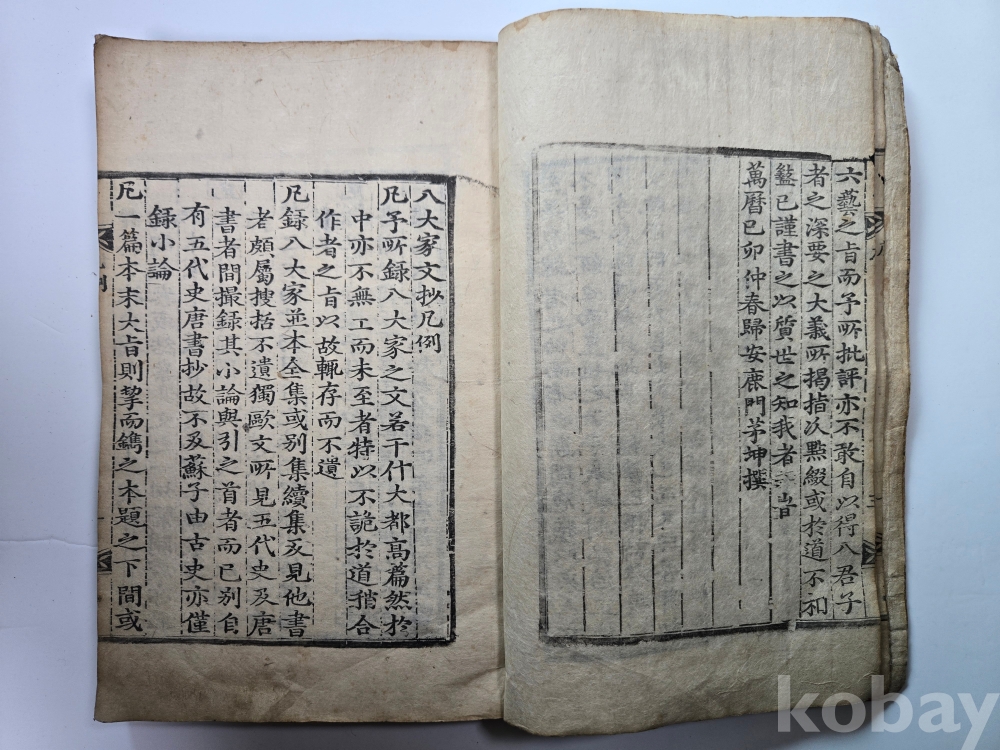 六藝之旨而予所批評亦不敢自以得八君子
者之深要之大義所揭指次點綴或於道不相
盭已謹書之以質世之知我者 旹
萬曆己卯仲春歸安鹿門茅坤撰
八大家文抄凡例
凡予所録八大家之文若干什大都高篇然於
中亦不無工而未至者特以不詭於道稍合
作者之旨以故輒存而不遺
凡録八大家並本全集或别集續集及見他書
者頗屬搜括不遺獨歐文所見五代史及唐
書者間撮録其小論與引之首者而已别自
有五代史唐書抄故不及蘇子由古史亦僅
録小論
凡一篇本末大旨則挈而鐫之本題之下間或
kobay